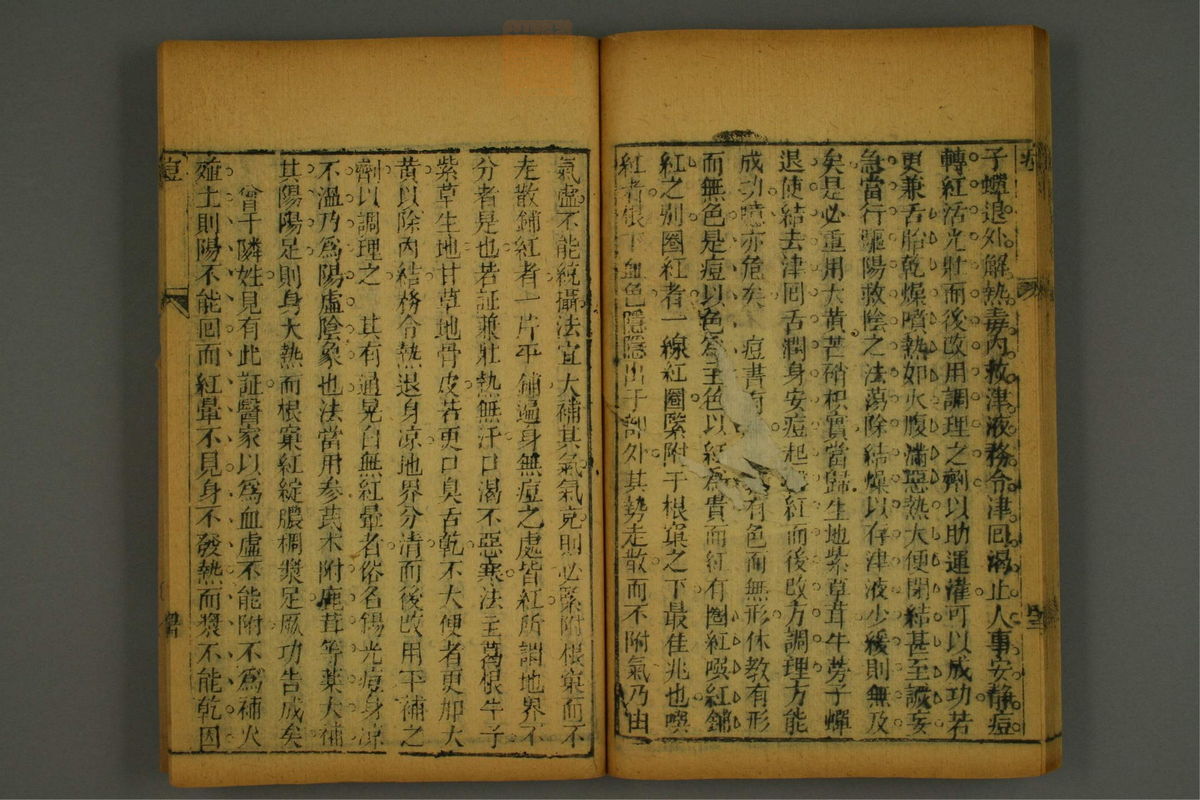 子蟬退外解熱毒內救津液務令津回渴止人事安靜痘
轉紅活光壯而後改用調理之劑以助運灌可以成功若
更兼舌胎乾燥噴熱如火腹滿惡熱大便閉結甚至譫妄
急當行驅陽救陰之法蕩除結燥以存津液少緩則無及
矣是必重用大黃芒硝枳實當歸生地紫草茸牛蒡子蟬
退使結去津回舌潤身安痘起 紅而後改方調理方能
成功噫亦危矣 痘書有 有色而無形休教有形
而無色是痘以色為主色以紅為貴而紅有圈紅噀紅鋪
紅之別圈紅者一線紅圈緊附于根窠之下最佳兆也噀
紅者根下血色隱隱出于部外其勢走散而不附氣乃由
氣虛不能統攝法宜大補其氣氣充則必緊附根窠而不
走散鋪紅者一片平鋪遍身無痘之處皆紅所謂地界不
分者是也若証兼壯熱無汗口渴不惡寒法主葛根牛子
紫草生地甘草地骨皮若更口臭舌乾不大便者更加大
黃以除內結務令熱退身涼地界分清而後改用平補之
劑以調理之 其有通晃白無紅暈者俗名錫光痘身凉
不溫乃為陽虛陰象也法當用參芪术附鹿茸等藥大補
其陽陽足則身大熱而根窠紅綻膿稠漿足厥功告成矣
曾于隣姓見有此証醫家以為血虛不能附不為補火
殖土則陽不能回而紅暈不見身不發熱而漿不能乾因